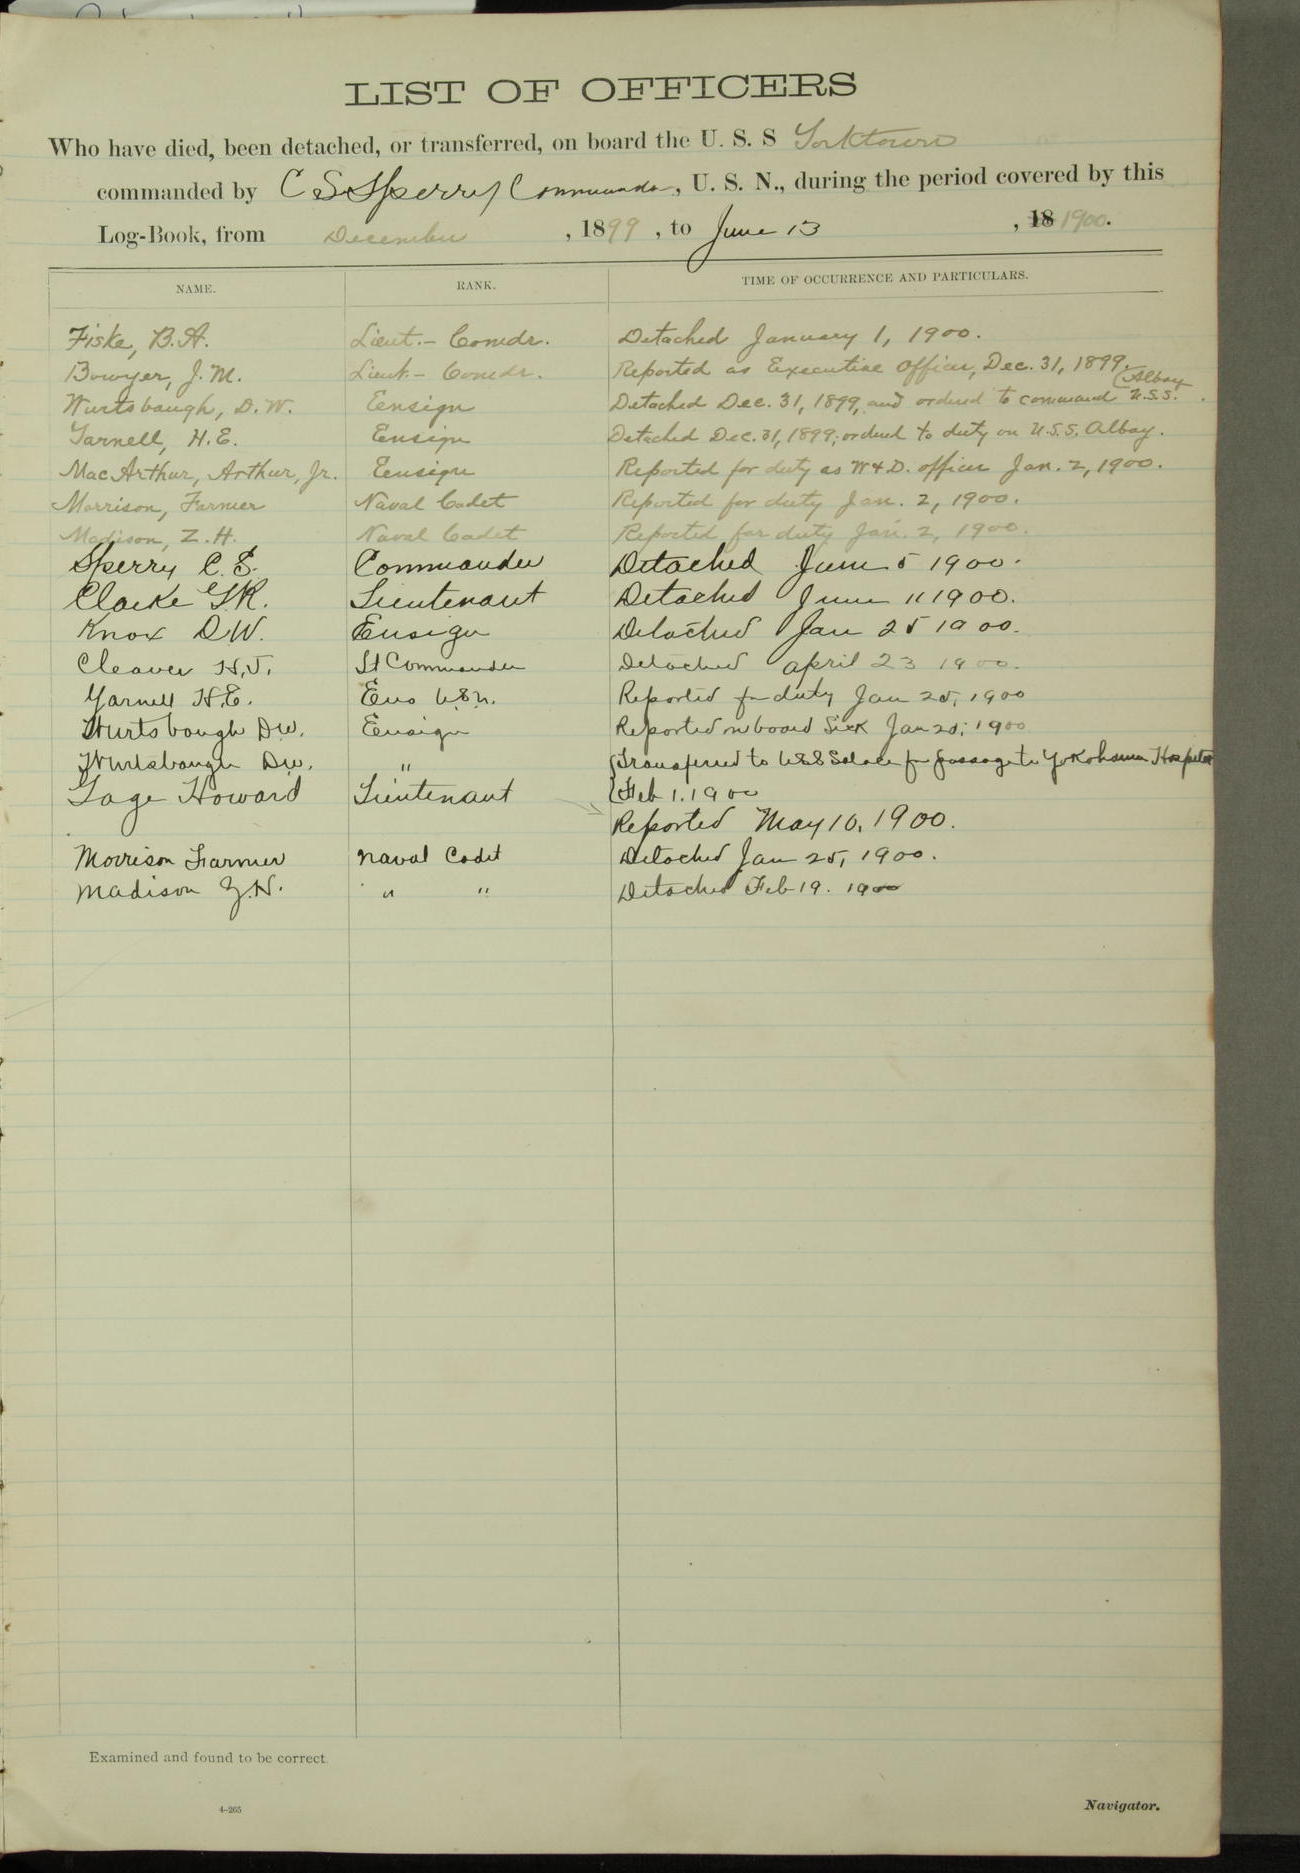 LIST OF OFFICERS
Who have died, been detached, or transferred, on board the U. S. S Yorktown
commanded by C S Sperry Commander, U. S. N., during the period covered by this
Log-Book, from December , 1899 , to June 13 , 18 1900.
NAME. RANK. TIME OF OCCURRENCE AND PARTICULARS.
Fiske, B.A. Lieut.- Comdr. Detached January 1, 1900.
Bowyer, J.M. Lieut- Comdr. Reported as Executive Officer, Dec. 31, 1899.
Wurtsbaugh, D.W. Eensign Detached Dec. 31, 1899, and ordered to command U.S.S. (Albay
Yarnell, H.E. Ensign Detached Dec. 31, 1899; ordered to duty on U.S.S. Albay.
MacArthur, Arthur, Jr. Eensign Reported for duty as W & D. officer Jan. 2, 1900.
Morrison, Farmer Naval Cadet Reported for duty Jan. 2, 1900.
Madison, Z.H. Naval Cadet Reported for duty Jan. 2, 1900.
Sperry C.S. Commander Detached June 5 1900.
Clarke G.R. Lieutenant Detached June 11 1900.
Knox D.W. Ensign Detached Jan 25 1900.
Cleaver H.T. Lt Commander Detached April 23 1900.
Yarnell H.E. Ens U.S.N. Reported for duty Jan 25, 1900
Wurtsbaugh D.W. Ensign Reported on board Sick Jan 25, 1900
Wurtsbaugh D.W. " {Transferred to U S S Solace for passage to Yokohama Hospital
Gage Howard Lieutenant {Feb 1. 1900
Reported May 10, 1900.
Morrison Farmer Naval Cadet Detached Jan 25, 1900.
Madison Z.H. " " Detached Feb 19. 1900
Examined and found to be correct.
4-265
Navigator.